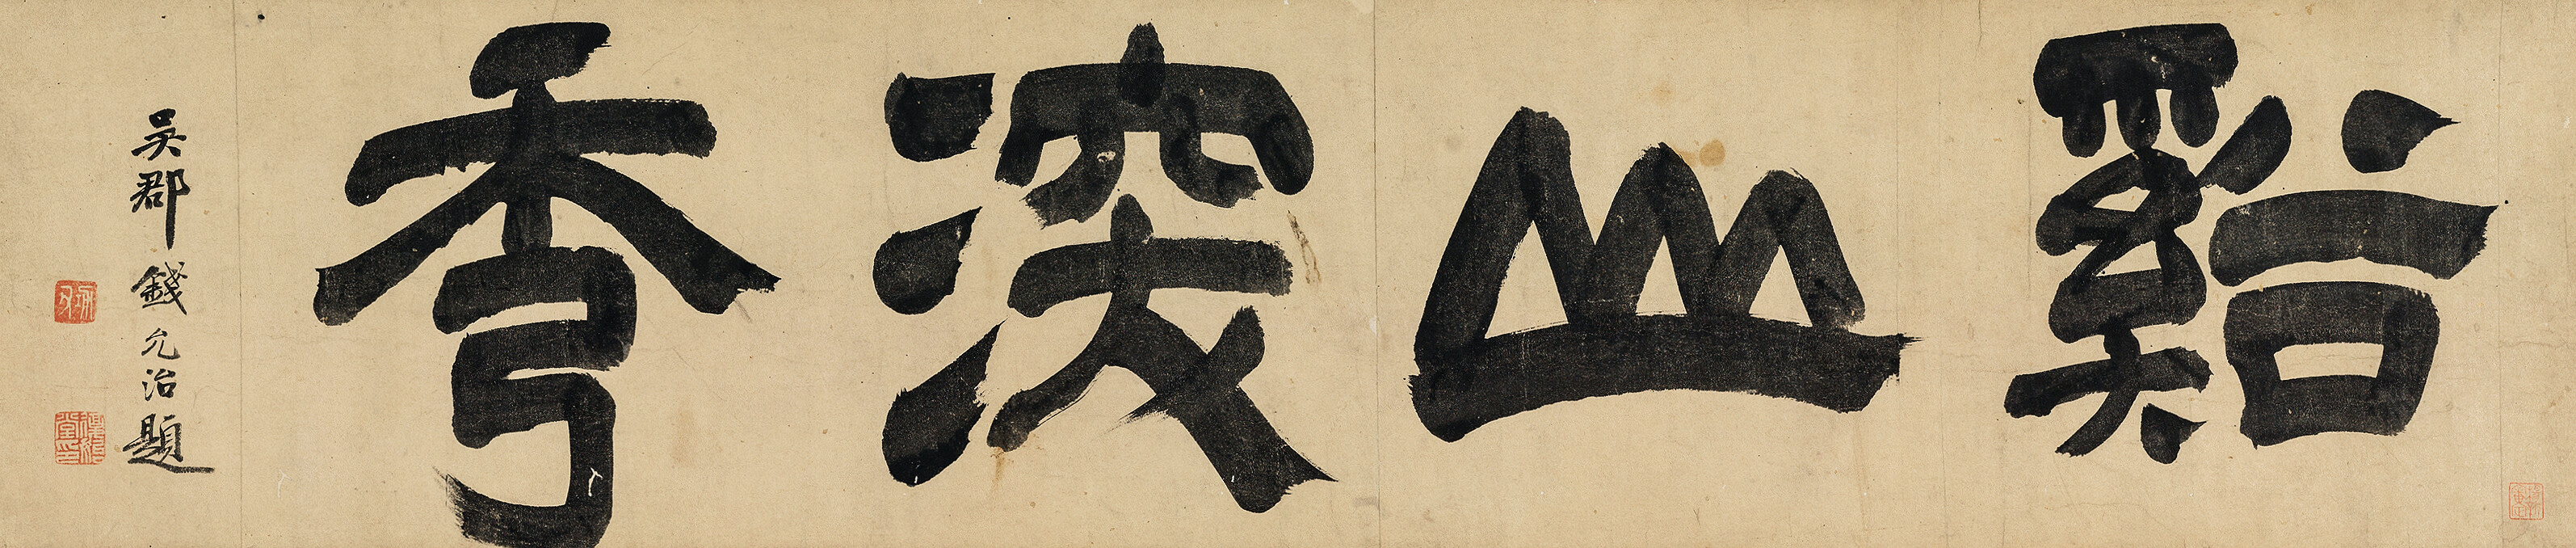 谿山深秀
吳郡錢允治題